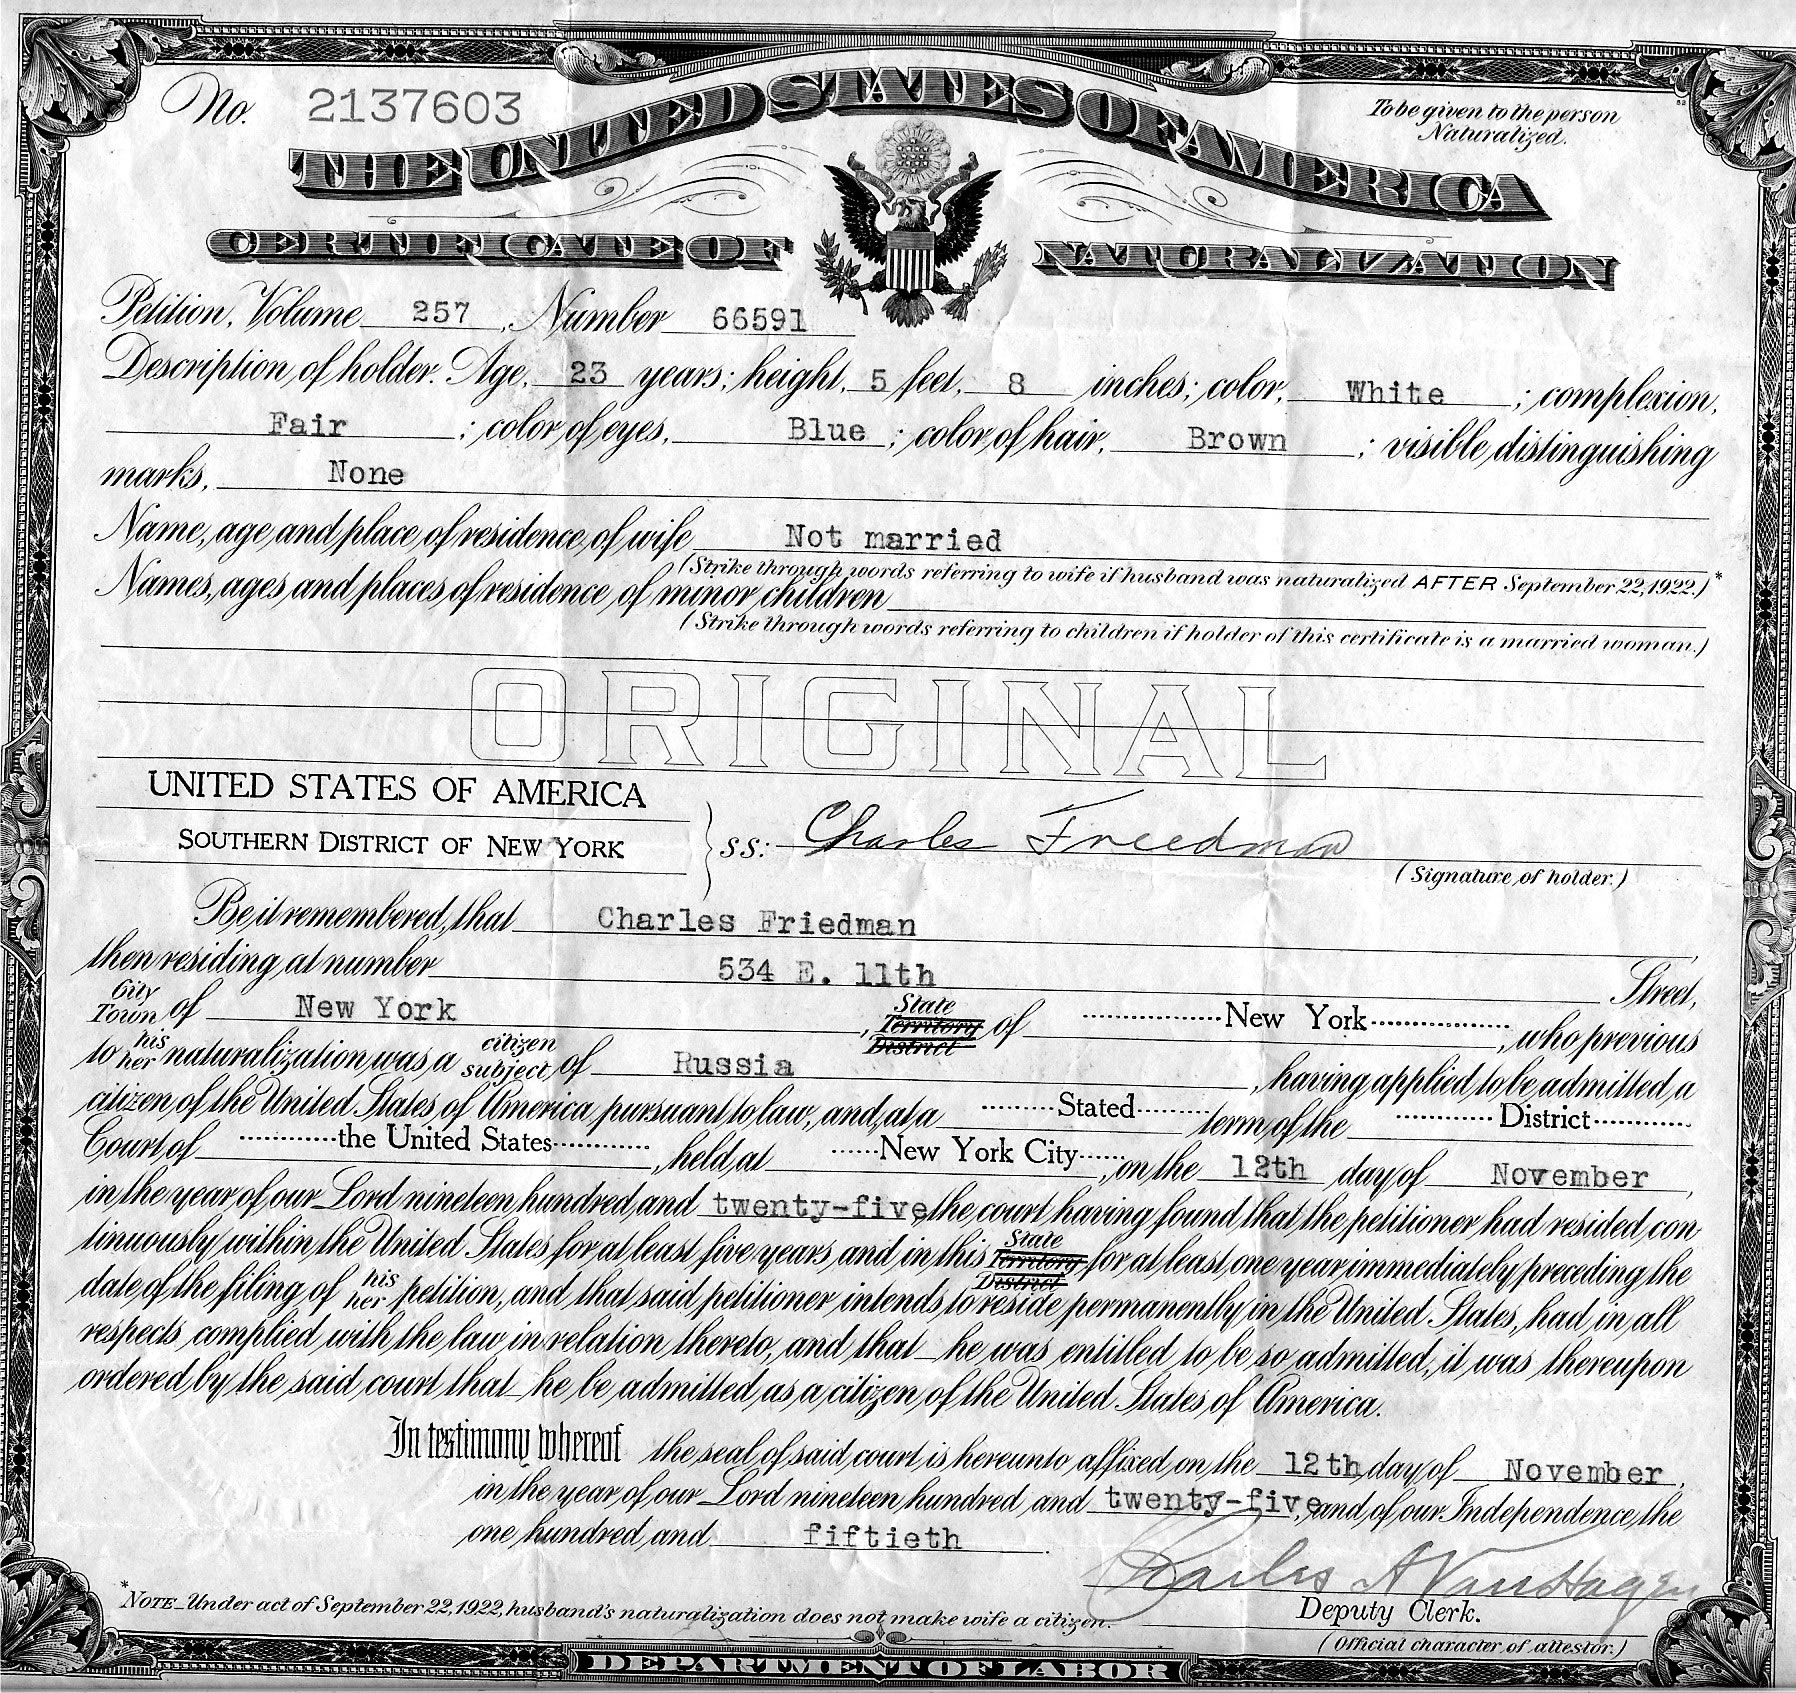 No. 2137603
To be given to the person
Naturalized.
THE UNITED STATES OF AMERICA
CERTIFICATE OF NATURALIZATION
Petition, Volume 257, Number 66591
Description of holder. Age, 23 years; height, 5 feet, 8 inches; color, White ; complexion,
Fair ; color of eyes, Blue ; color of hair, Brown ; visible distinguishing
marks, None
Name, age and place of residence of wife Not married
(Strike through words referring to wife if husband was naturalized AFTER September 22, 1922.)*
Names, ages and places of residence of minor children
(Strike through words referring to children if holder of this certificate is a married woman.)
ORIGINAL
UNITED STATES OF AMERICA
SOUTHERN DISTRICT OF NEW YORK
ss: Charles Freedman
(Signature of holder.)
Be it remembered, that Charles Friedman
then residing at number 534 E. 11th Street,
City
Town of New York, State
Territory
District of New York, who previous
to his
her naturalization was a citizen
subject of Russia, having applied to be admitted a
citizen of the United States of America pursuant to law, and, at a Stated term of the District
Court of the United States, held at New York City, on the 12th day of November,
in the year of our Lord nineteen hundred and twenty-five, the court having found that the petitioner had resided con-
tinuously within the United States for at least five years and in this State
Territory
District for at least one year immediately preceding the
date of the filing of his
her petition, and that said petitioner intends to reside permanently in the United States, had in all
respects complied with the law in relation thereto, and that he was entitled to be so admitted, it was thereupon
ordered by the said court that he be admitted as a citizen of the United States of America.
In testimony whereof the seal of said court is hereunto affixed on the 12th day of November,
in the year of our Lord nineteen hundred and twenty-five, and of our Independence the
one hundred and fiftieth.
Charles A Van Hagen
Deputy Clerk.
(Official character of attestor.)
*NOTE_Under act of September 22, 1922, husband's naturalization does not make wife a citizen.
DEPARTMENT OF LABOR